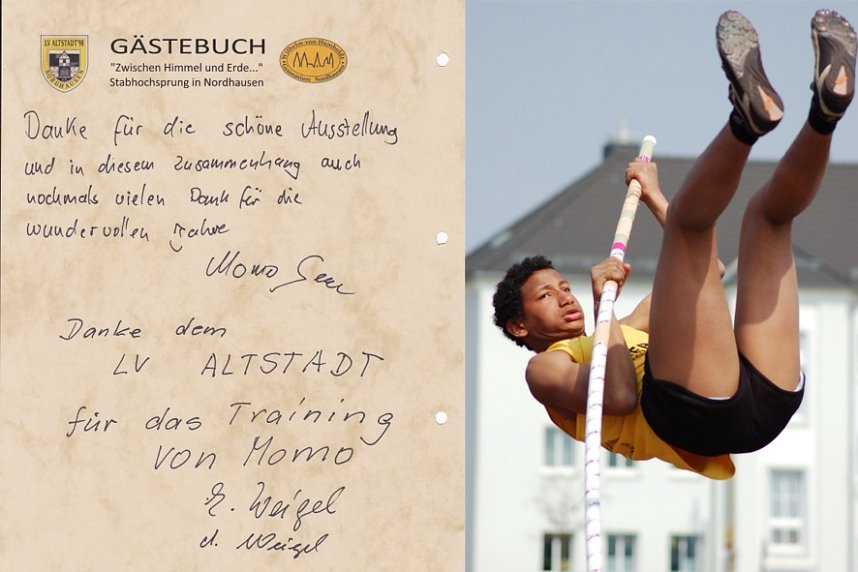 LV ALTSTADT'98
NORDHAUSEN
GÄSTEBUCH
"Zwischen Himmel und Erde..."
Stabhochsprung in Nordhausen
Wilhelm von Humboldt
Gymnasium Nordhausen
Danke für die schöne Ausstellung
und in diesem Zusammenhang auch
nochmals vielen Dank für die
wundervollen Jahre
Momo
Danke dem
LV ALTSTADT
für das Training
von Momo
Weigel
Weigel